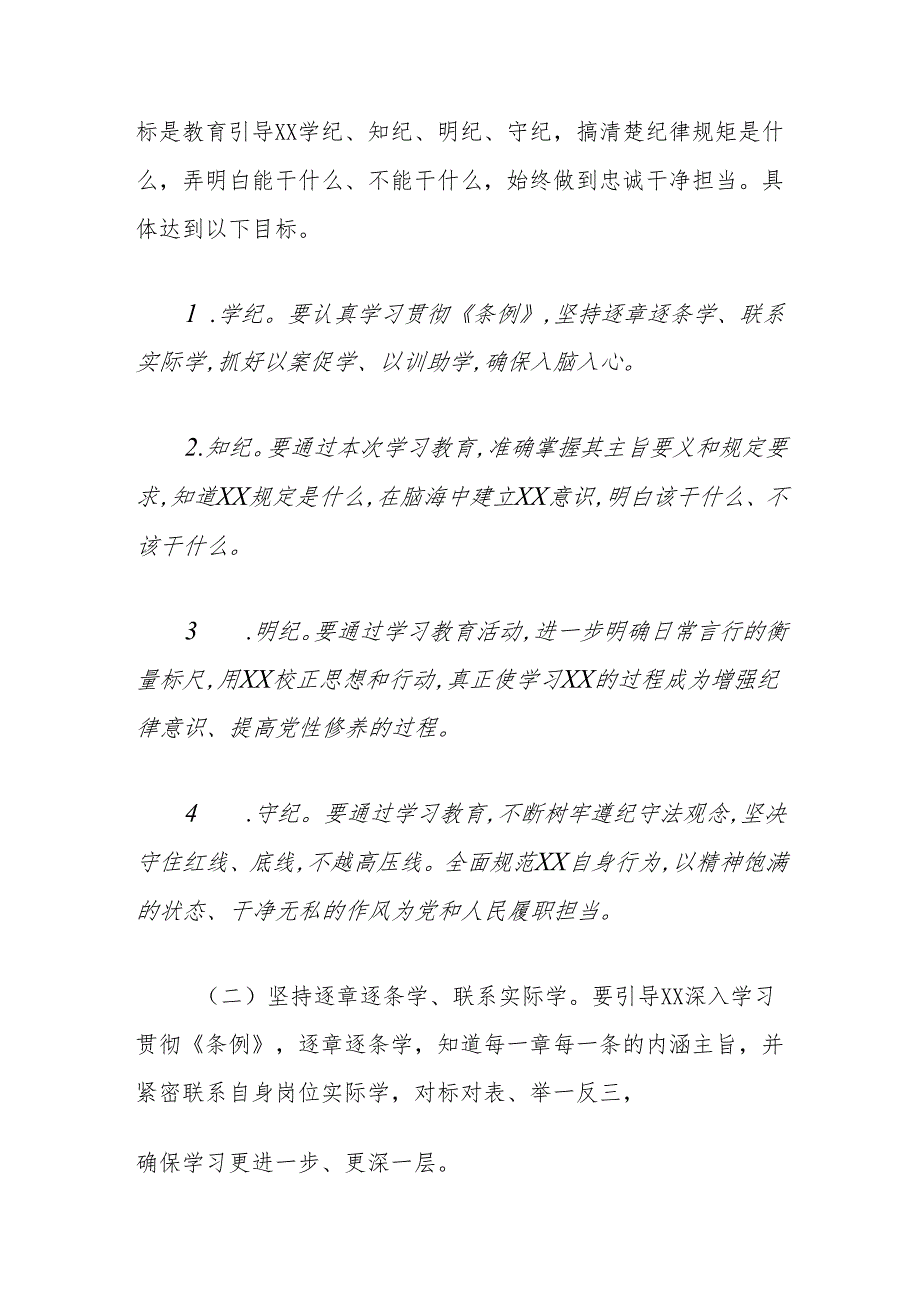 标是教育引导XX学纪、知纪、明纪、守纪，搞清楚纪律规矩是什
么，弄明白能干什么、不能干什么，始终做到忠诚干净担当。具
体达到以下目标。
1 .学纪。要认真学习贯彻《条例》,坚持逐章逐条学、联系
实际学,抓好以案促学、以训助学,确保入脑入心。
2.知纪。要通过本次学习教育,准确掌握其主旨要义和规定要
求,知道XX规定是什么,在脑海中建立XX意识,明白该干什么、不
该干什么。
3 .明纪。要通过学习教育活动,进一步明确日常言行的衡
量标尺,用XX校正思想和行动,真正使学习XX的过程成为增强纪
律意识、提高党性修养的过程。
4 .守纪。要通过学习教育,不断树牢遵纪守法观念,坚决
守住红线、底线,不越高压线。全面规范XX自身行为,以精神饱满
的状态、干净无私的作风为党和人民履职担当。
（二）坚持逐章逐条学、联系实际学。要引导XX深入学习
贯彻《条例》，逐章逐条学，知道每一章每一条的内涵主旨，并
紧密联系自身岗位实际学，对标对表、举一反三，
确保学习更进一步、更深一层。